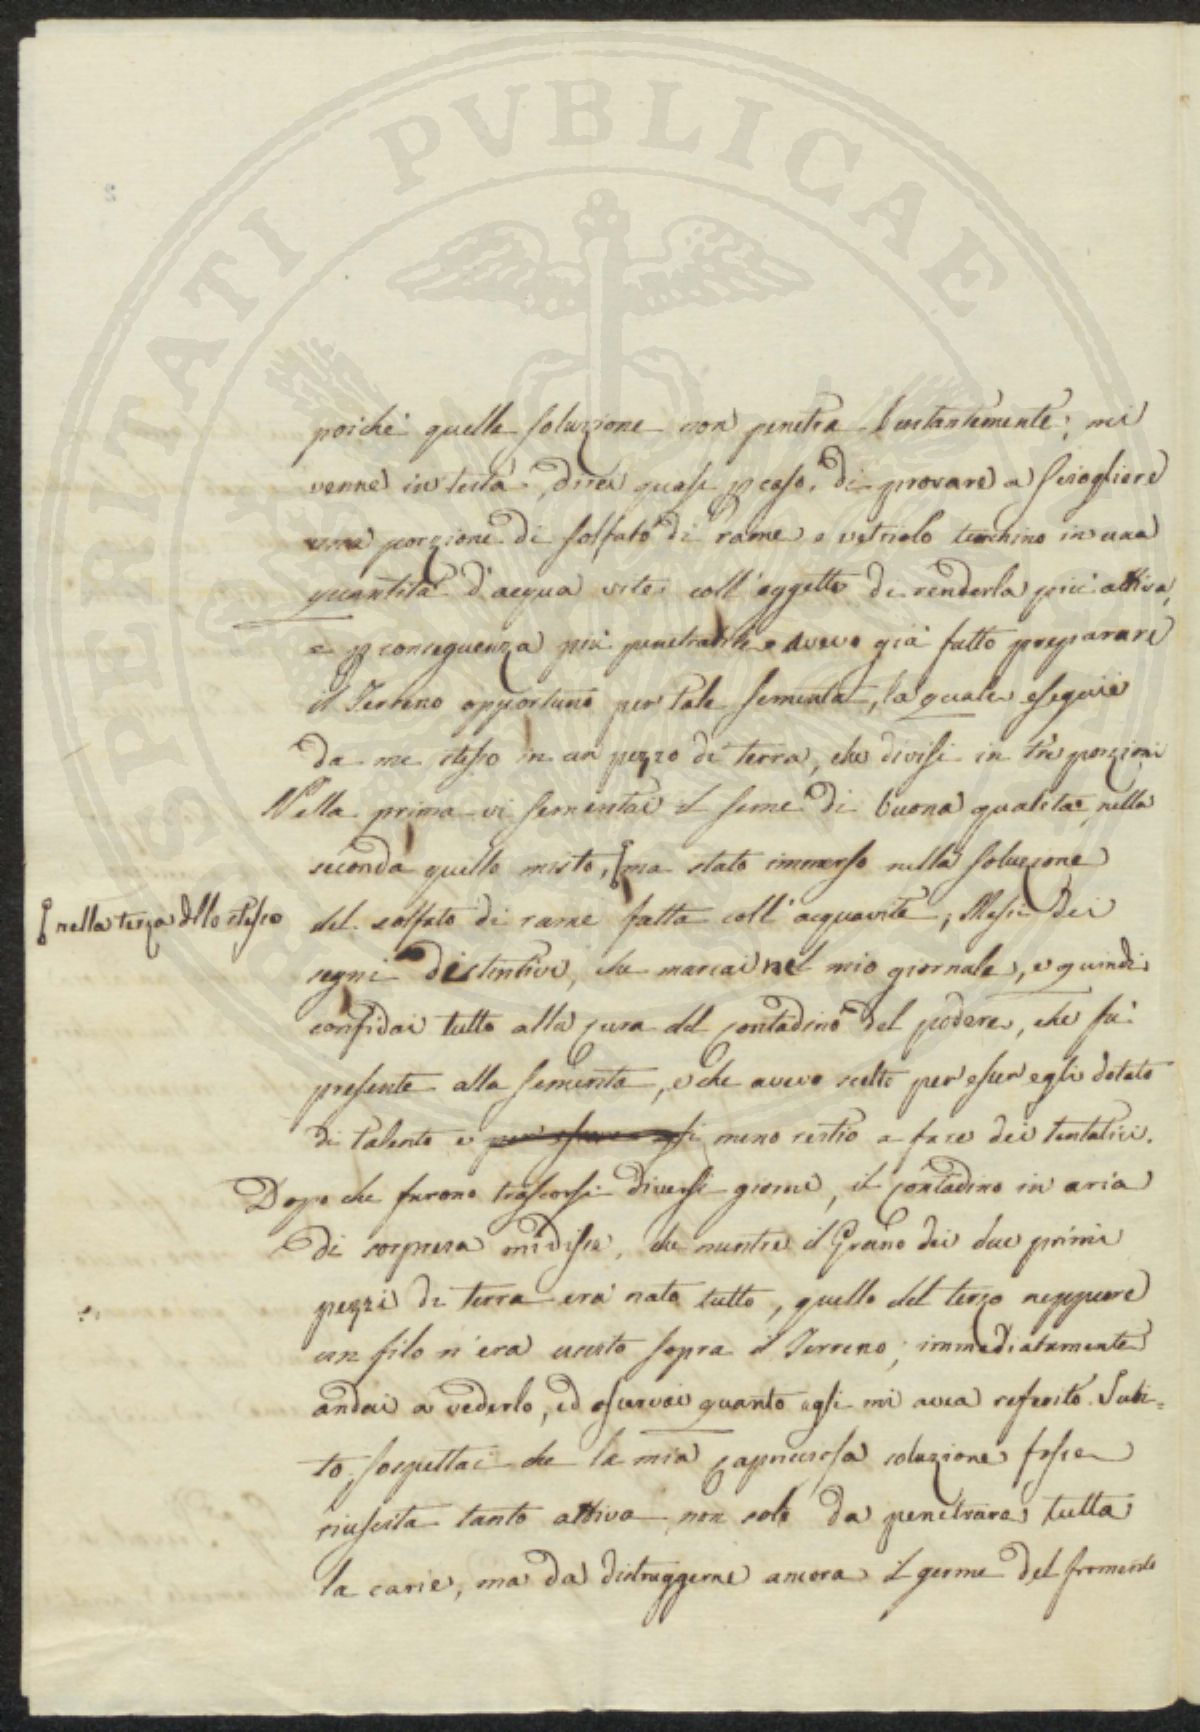 PROSPERITATI PUBLICAE
poichè quella soluzione non penetra bastantemente; mi
venne in testa, direi quasi p caso, di provare a sciogliere
una porzione di solfato di rame o vetriolo turchino in una
quantità d'acqua vite coll'oggetto di renderla più attiva,
e p conseguenza più penetrabile. Avevo già fatto preparare
il Terreno opportuno per tale sementa, la quale eseguii
da me stesso in un pezzo di terra, che divisi in trè porzioni
Nella prima vi sementai il seme di buona qualità, nella
seconda quello misto, ma stato immerso nella soluzione
nella terza dello stesso
del solfato di rame fatta coll'acquavite; Messi dei
segni distintivi, che marcai nel mio giornale, e quindi
confidai tutto alla cura del contadino del podere, che fù
presente alla sementa, e che avevo scelto per esser egli dotato
di talento e meno restio a fare dei tentativi.
Dopo che furono trascorsi diversi giorni, il contadino in aria
di sorpresa mi disse, che mentre il Grano dei due primi
pezzi di terra era nato tutto, quello del terzo neppure
un filo n'era uscito sopra il Terreno; immediatamente
andai a vederlo, ed osservai quanto egli mi avea referito. Subi=
to sospettai che la mia capricciosa soluzione fosse
riuscita tanto attiva non solo da penetrare tutta
la carie, ma da distruggerne ancora il germe del frumento